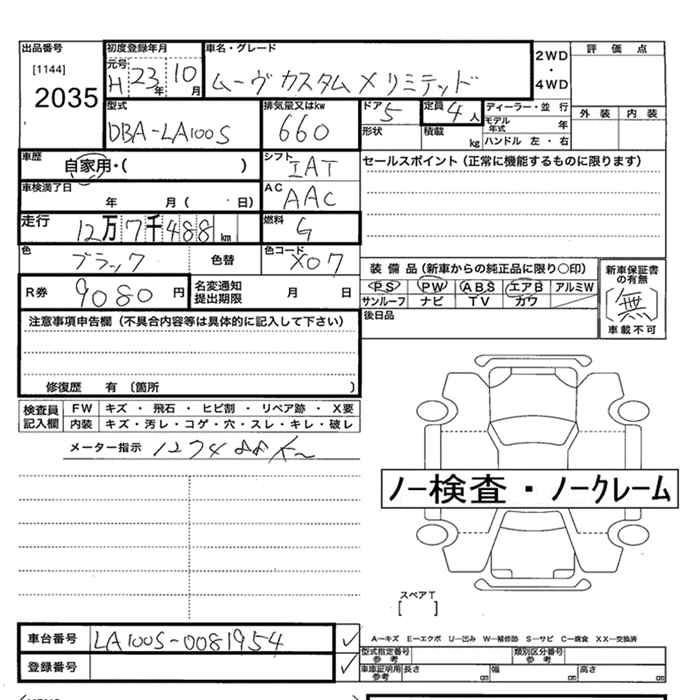 出品番号 初度登録年月 車名・グレード 2WD・4WD 評価点
[1144] 元号 H 23年 10月 ムーヴカスタムXリミテッド
2035
型式 排気量又はkw ドア 5 定員 4人 ディーラー・並行 外装 内装
DBA-LA100S 660 形状 積載 kg モデル年式 年
ハンドル 左・右
車歴 自家用・( ) シフト IAT セールスポイント(正常に機能するものに限ります)
車検満了日 年 月( 日) AC AAC
走行 12万7千488km 燃料 G
色 ブラック 色替 色コード X07
装備品(新車からの純正品に限り○印) 新車保証書の有無
R券 9080円 名変通知提出期限 月 日 PS PW ABS エアB アルミW [無]
サンルーフ ナビ TV カワ 車載不可
注意事項申告欄(不具合内容等は具体的に記入して下さい) 後日品
修復歴 有 (箇所 )
検査員記入欄 FW キズ・飛石・ヒビ割・リペア跡・X要
内装 キズ・汚レ・コゲ・穴・スレ・キレ・破レ
メーター指示 127488K
ノー検査・ノークレーム
スペアT
[ ]
車台番号 LA100S-0081954 ✓ A―キズ E―エクボ U―凹み W―補修跡 S―サビ C―腐食 XX―交換済
型式指定番号 参考 類別区分番号 参考
登録番号 ✓ 車庫証明用 参考 長さ cm 幅 cm 高さ cm